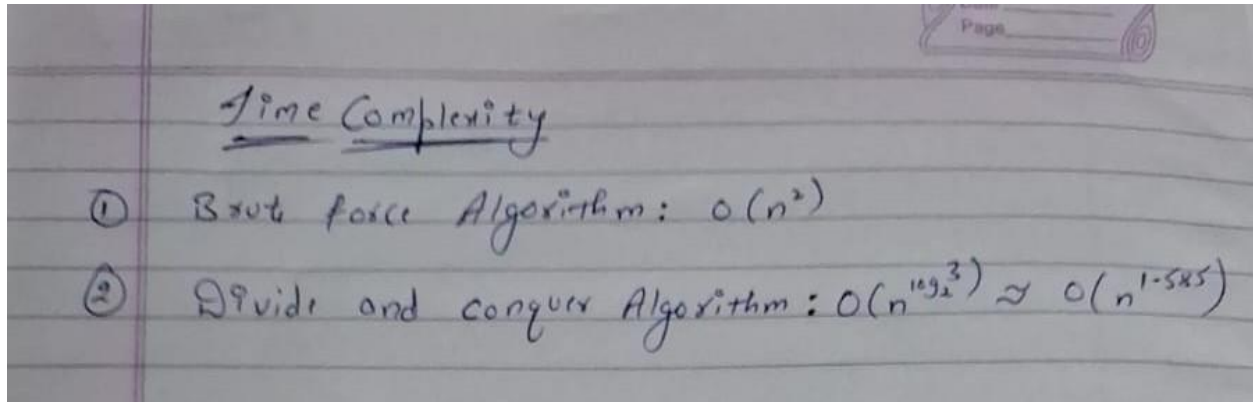 Page
Time Complexity
① Brut force Algorithm: O(n²)
② Divide and conquer Algorithm: O(n^log₂3) ≈ O(n^1.585)